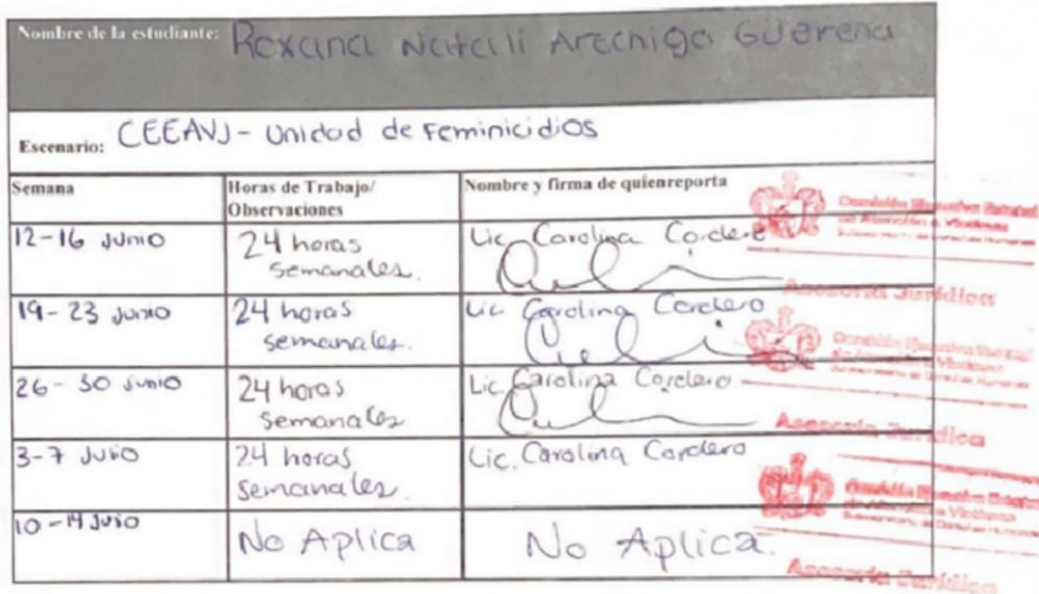 Nombre de la estudiante: Roxana Natali Arechiga Guereña
Escenario: CEEAVJ - Unidad de Feminicidios
Semana Horas de Trabajo/ Observaciones Nombre y firma de quienreporta
12-16 Junio 24 horas semanales. Lic Carolina Cordero
19-23 Junio 24 horas semanales. Lic Carolina Cordero
26-30 Junio 24 horas semanales Lic. Carolina Cordero
3-7 Julio 24 horas semanales. Lic. Carolina Cordero
10-14 Julio No Aplica No Aplica.
Comisión Ejecutiva Estatal
de Atención a Víctimas
Asesoría Jurídica
Comisión Ejecutiva Estatal
de Atención a Víctimas
Asesoría Jurídica
Comisión Ejecutiva Estatal
de Atención a Víctimas
Asesoría Jurídica